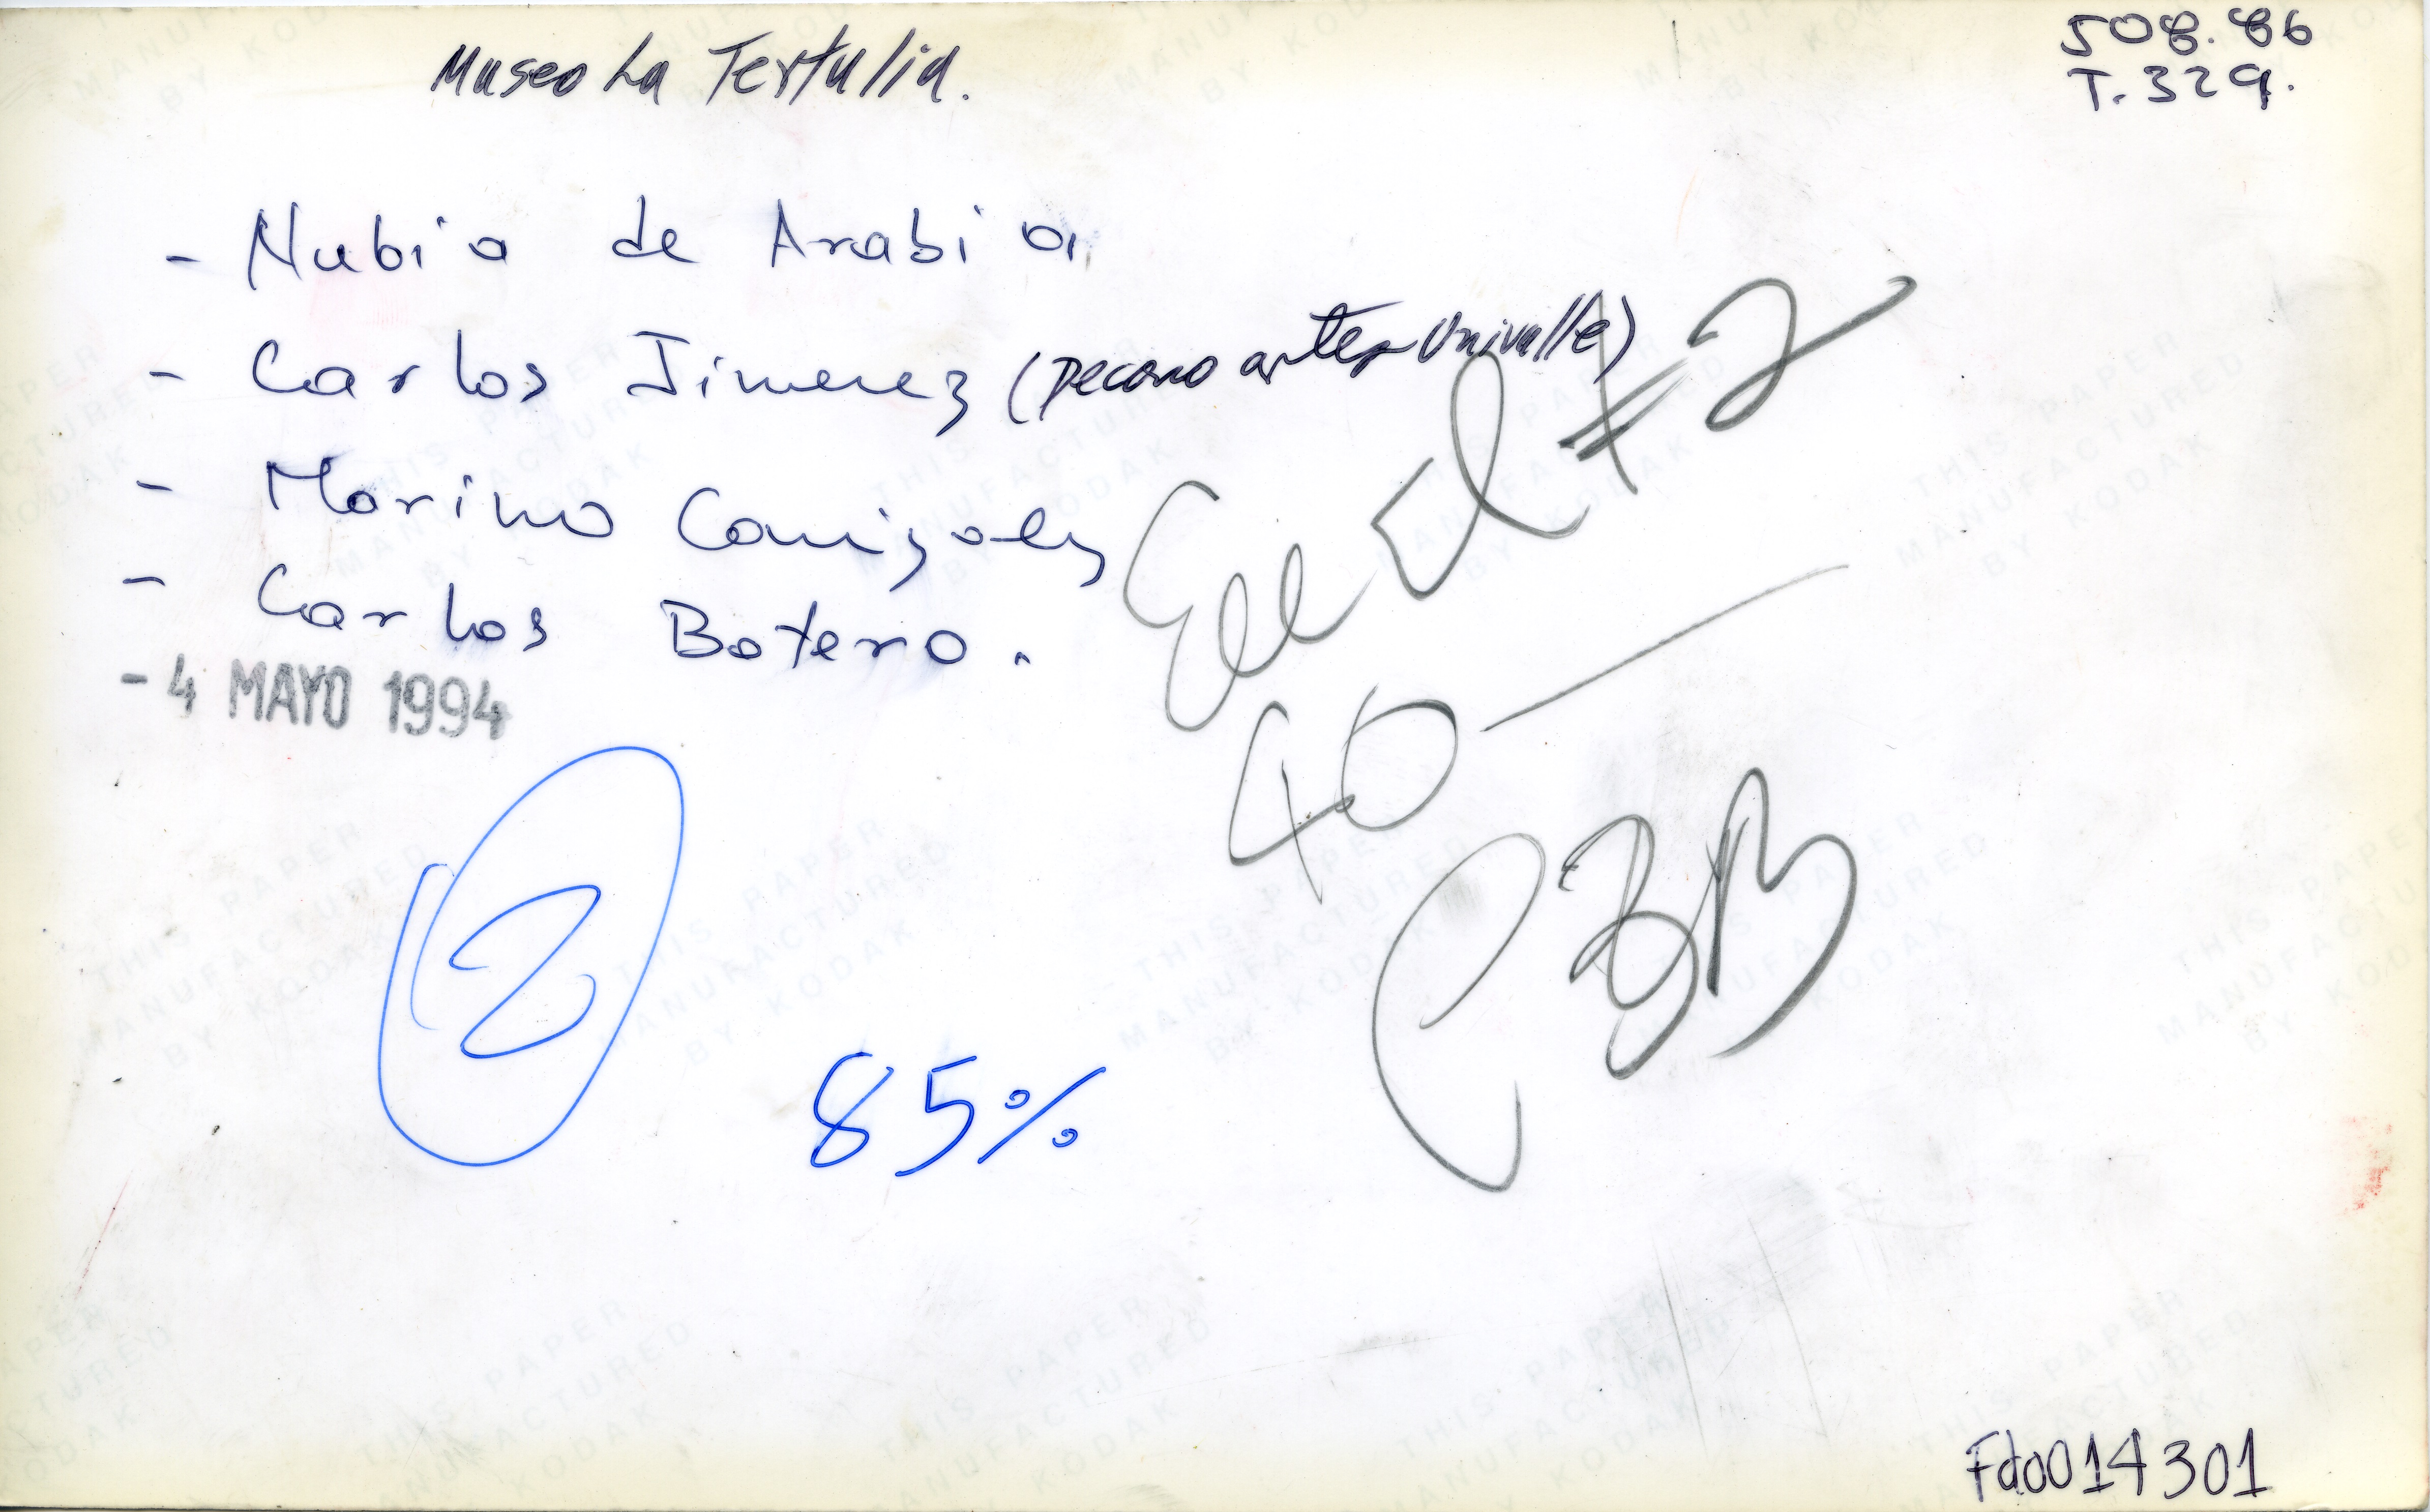 Museo La Tertulia.
508.86
T.329.
- Nubia de Arabia
- Carlos Jimenez (Decano artes Univalle)
- Marino Canizales
- Carlos Botero.
- 4 MAYO 1994
#2
40—
2
85%
Fdo014301
THIS PAPER
MANUFACTURED
BY KODAK